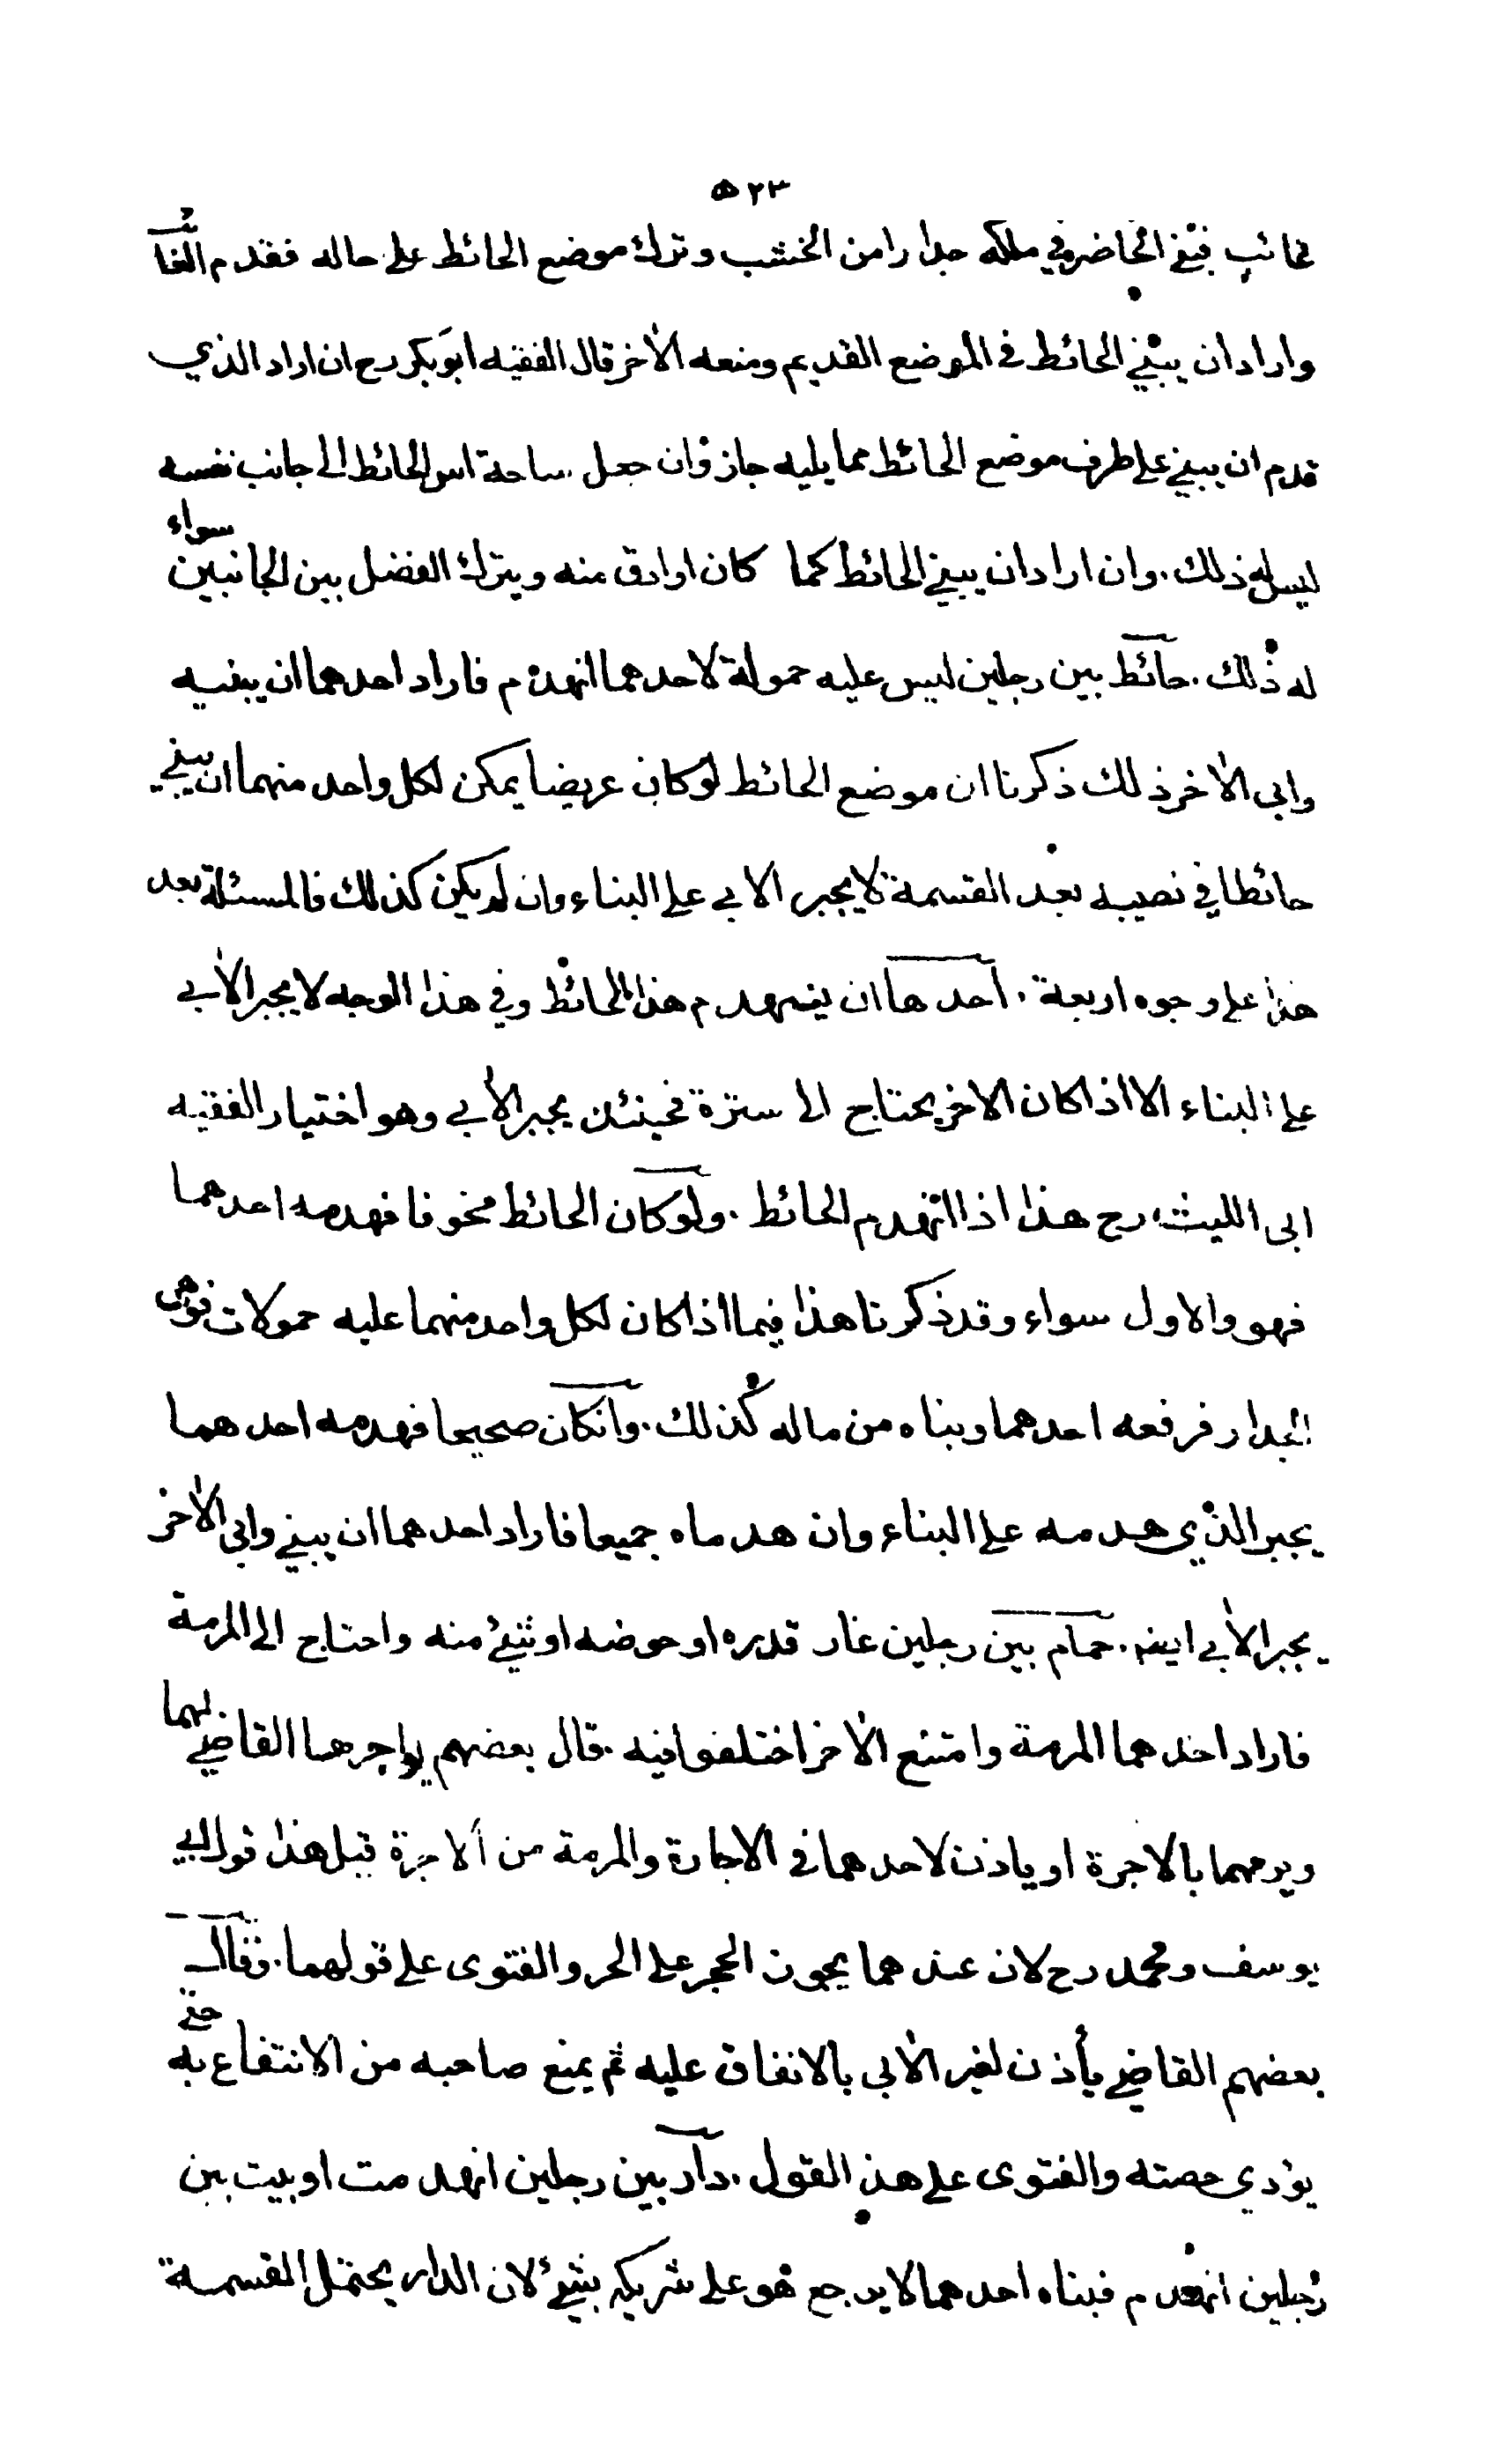 ٥٢٣
غائب فبنى الحاضر في ملكه جدارا من الخشب وترك موضع الحائط على حاله فقدم الغائب
واراد ان يبني الحائط في الموضع القديم ومنعه الاخر قال الفقيه ابو بكر رح ان اراد الذي
قدم ان يبني على طرف موضع الحائط مما يليه جاز وان جعل ساحة اس الحائط الى جانب نفسه
ليس له ذلك. وان اراد ان يبني الحائط كما كان او ادق منه ويترك الفضل بين الجانبين سواء
له ذلك. حائط بين رجلين ليس عليه حمولة لاحدهما انهدم فاراد احدهما ان يبنيه
وابى الاخر ذلك ذكرنا ان موضع الحائط لو كان عريضا يمكن لكل واحد منهما ان يبني
حائطا في نصيبه بعد القسمة لا يجبر الابي على البناء وان لم يكن كذلك فالمسئلة بعد
هذا على وجوه اربعة. احدها ان ينهدم هذا الحائط وفي هذا الوجه لا يجبر الابي
على البناء الا اذا كان الاخر يحتاج الى سترة فحينئذ يجبر الابي وهو اختيار الفقيه
ابى الليث رح هذا اذا انهدم الحائط. ولو كان الحائط مخوفا فهدمه احدهما
فهو والاول سواء وقد ذكرنا هذا فيما اذا كان لكل واحد منهما عليه حمولات فوهى
الجدار فرفعه احدهما وبناه من ماله كذلك. وانكان صحيحا فهدمه احدهما
يجبر الذي هدمه على البناء وان هدماه جميعا فاراد احدهما ان يبني وابى الاخر
يجبر الابي ايضا. حمام بين رجلين غار قدره او حوضه او شيئ منه واحتاج الى المرمة
فاراد احدهما المرمة وامتنع الاخر اختلفوا فيه. قال بعضهم يواجرها القاضي لهما
ويرمهما بالاجرة او ياذن لاحدهما في الاجارة والمرمة من الاجرة قيل هذا قول ابي
يوسف ومحمد رح لان عندهما يجوز الحجر على الحر والفتوى على قولهما. وقال
بعضهم القاضي يأذن لغير الابى بالانفاق عليه ثم يمنع صاحبه من الانتفاع به حتى
يؤدي حصته والفتوى على هذا القول. دار بين رجلين انهدمت او بيت بين
رجلين انهدم فبناه احدهما لا يرجع هو على شريكه بشيئ لان الدار يحتمل القسمة